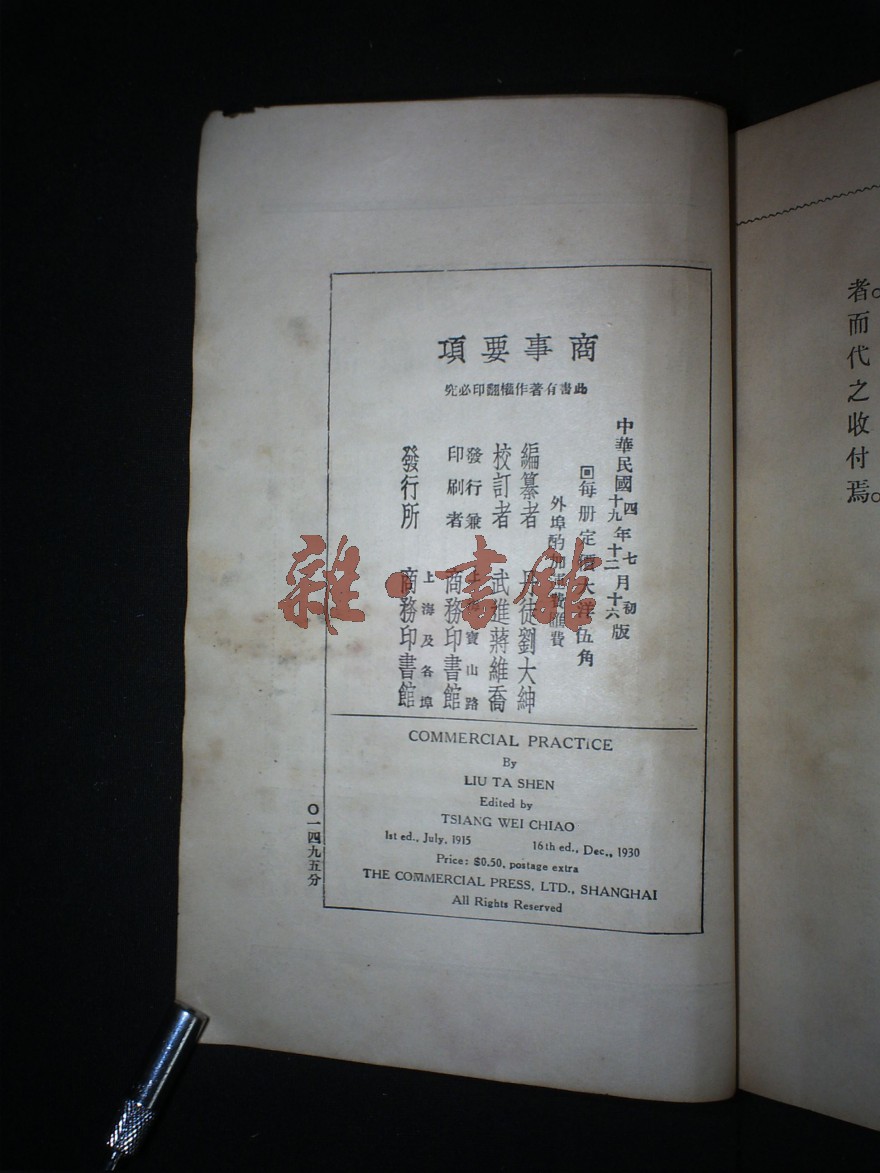 者而代之收付焉。
商事要項
此書有著作權翻印必究
中華民國四年七月初版
十九年十二月十六版
回每册定價大洋伍角
外埠酌加運費匯費
編纂者 丹徒劉大紳
校訂者 武進蔣維喬
發行兼印刷者 上海寶山路 商務印書館
發行所 上海及各埠 商務印書館
COMMERCIAL PRACTICE
By
LIU TA SHEN
Edited by
TSIANG WEI CHIAO
1st ed., July, 1915 16th ed., Dec., 1930
Price: $0.50, postage extra
THE COMMERCIAL PRESS, LTD., SHANGHAI
All Rights Reserved
〇一四九五分
雜·書館